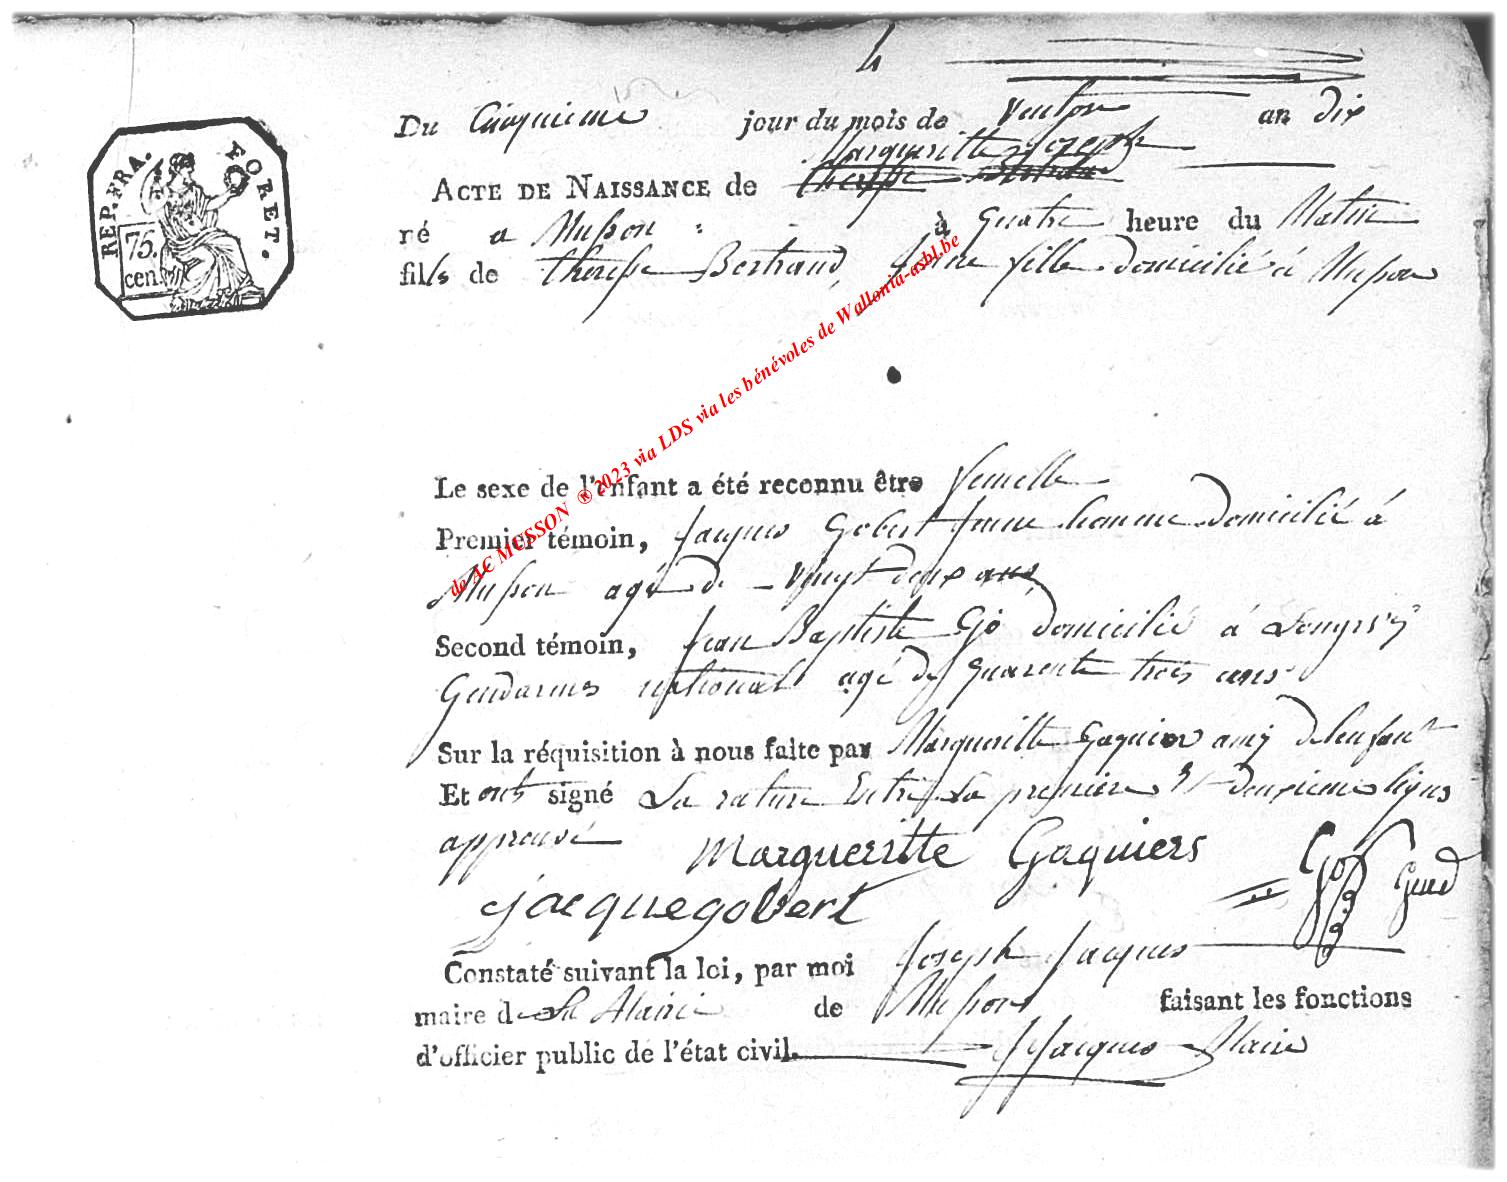 4
Du Cinquieme jour du mois de Ventose an dix
Margueritte Joseph
ACTE DE NAISSANCE de Theresse Bertrand
né a Musson à quatre heure du Matin
fils de Theresse Bertrand, Jeune fille domicilié à Musson
Le sexe de l'enfant a été reconnu être femelle
Premier témoin, Jacques Gobert Jeune homme domicilié à
Musson agé de vingt deux ans
Second témoin, Jean Baptiste Gö domicilié à Longwÿ
Gendarme national agé de quarente trois ans
Sur la réquisition à nous faite par Margueritte Gaquier amÿ de lenfant
Et ont signé La rature Entre la premiere Et deuxieme ligne
approuvé Margueritte Gaquiers Gö Gend
jacque gobert
Constaté suivant la loi, par moi Joseph Jacques
maire de la Mairie de Musson faisant les fonctions
d'officier public de l'état civil. J Jacques Maire
REP. FRA. FORET.
75.
cen.
de AC MUSSON ® 2023 via LDS via les bénévoles de Wallonia-asbl.be